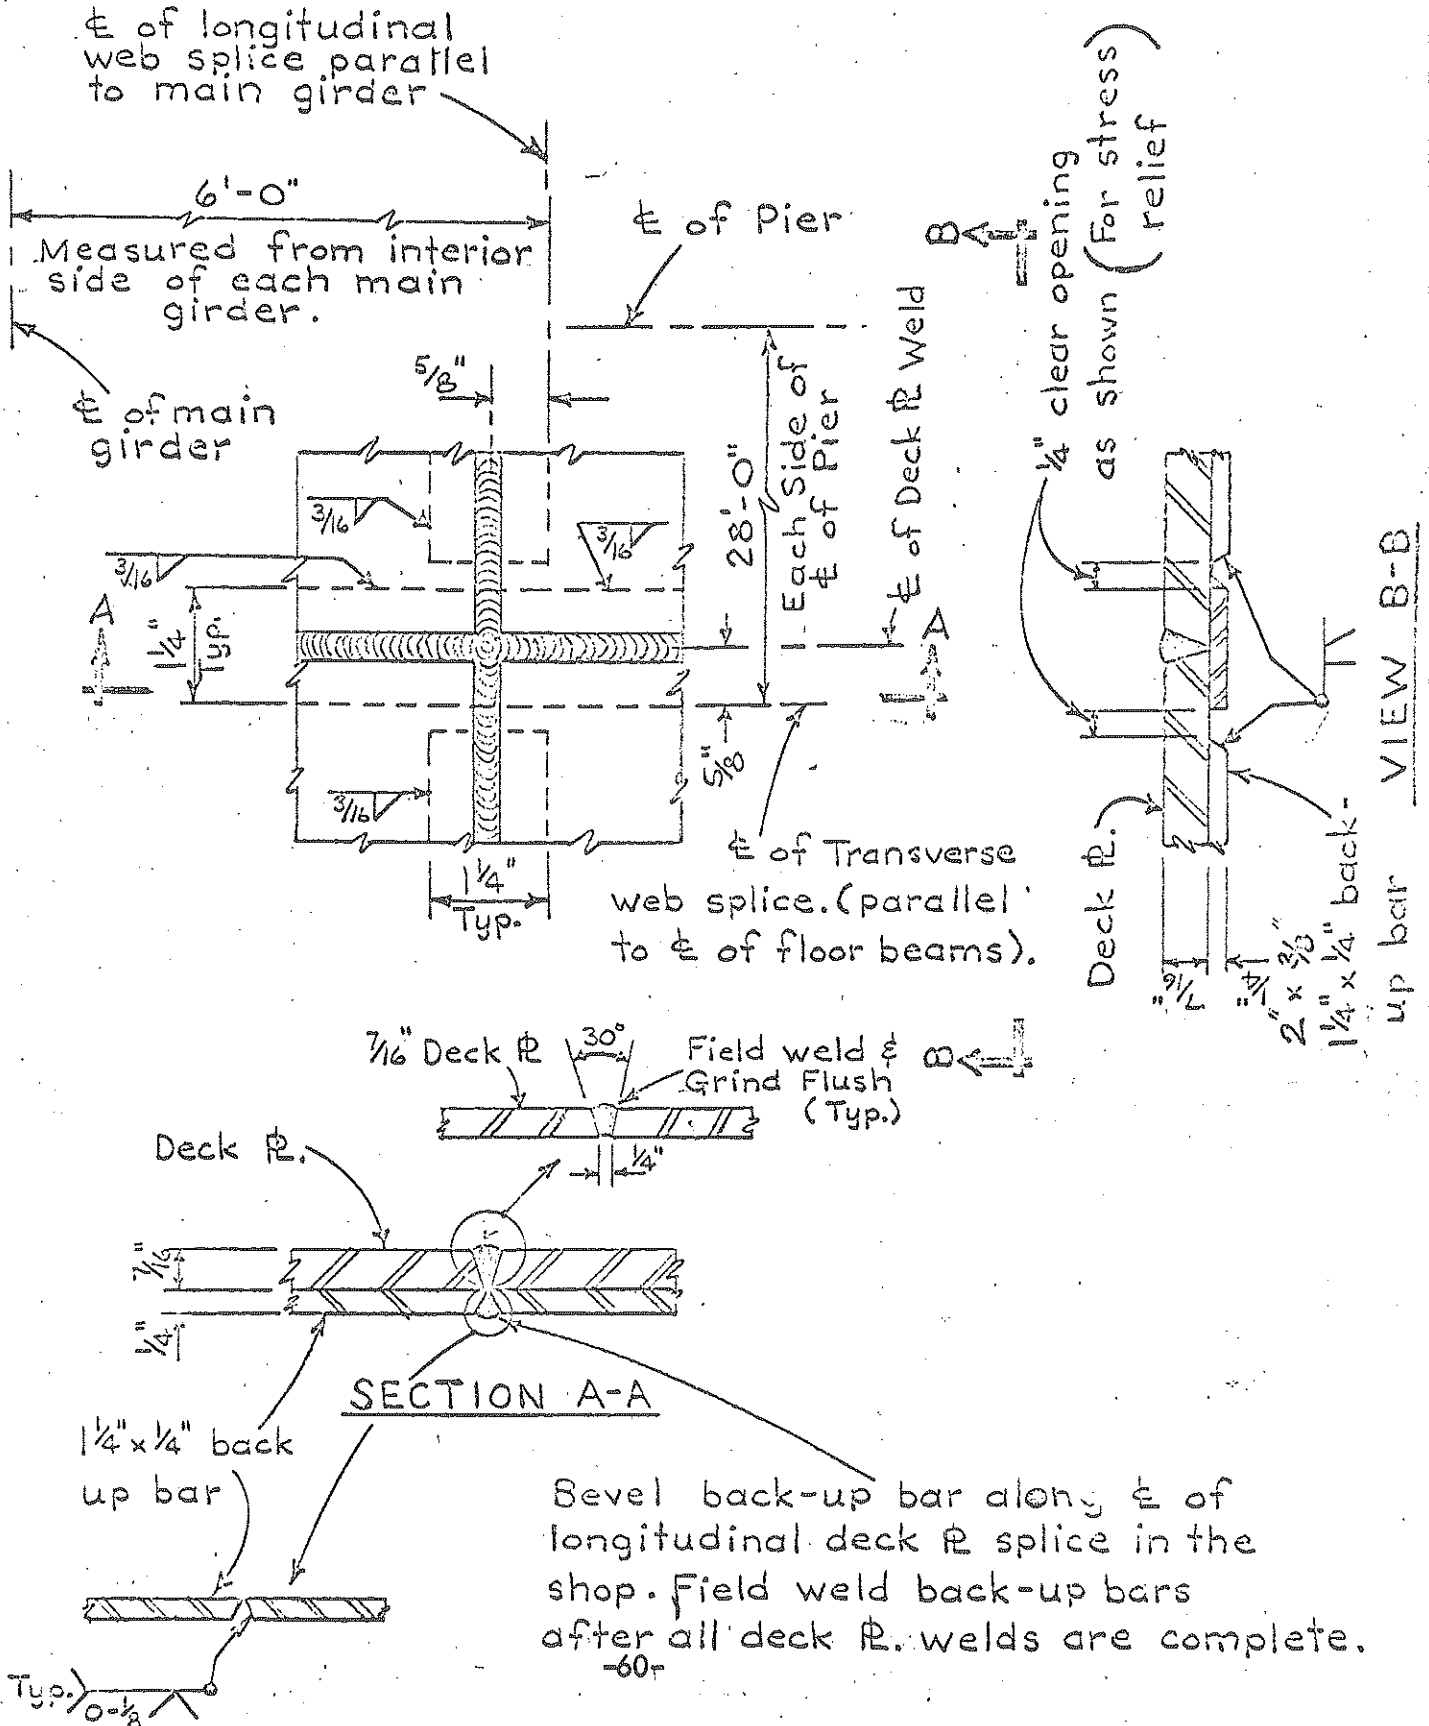 ℄ of longitudinal
web splice parallel
to main girder
6'-0"
Measured from interior
side of each main
girder.
℄ of Pier
℄ of main
girder
5/8"
3/16
3/16
3/16
1 1/4"
Typ.
A
A
28'-0"
Each Side of
℄ of Pier
℄ of Deck PL Weld
5/8"
3/16
1 1/4"
Typ.
℄ of Transverse
web splice. (parallel
to ℄ of floor beams).
B
1/4" clear opening
as shown (For stress
relief)
Deck PL.
7/16"
1/4"
2" x 3/8"
1 1/4" x 1/4" back-
up bar
VIEW B-B
B
7/16" Deck PL
30°
Field weld &
Grind Flush
(Typ.)
1/4"
Deck PL.
7/16"
1/4"
SECTION A-A
1 1/4" x 1/4" back
up bar
Bevel back-up bar along ℄ of
longitudinal deck PL splice in the
shop. Field weld back-up bars
after all deck PL. welds are complete.
-60-
Typ.
0-1/8